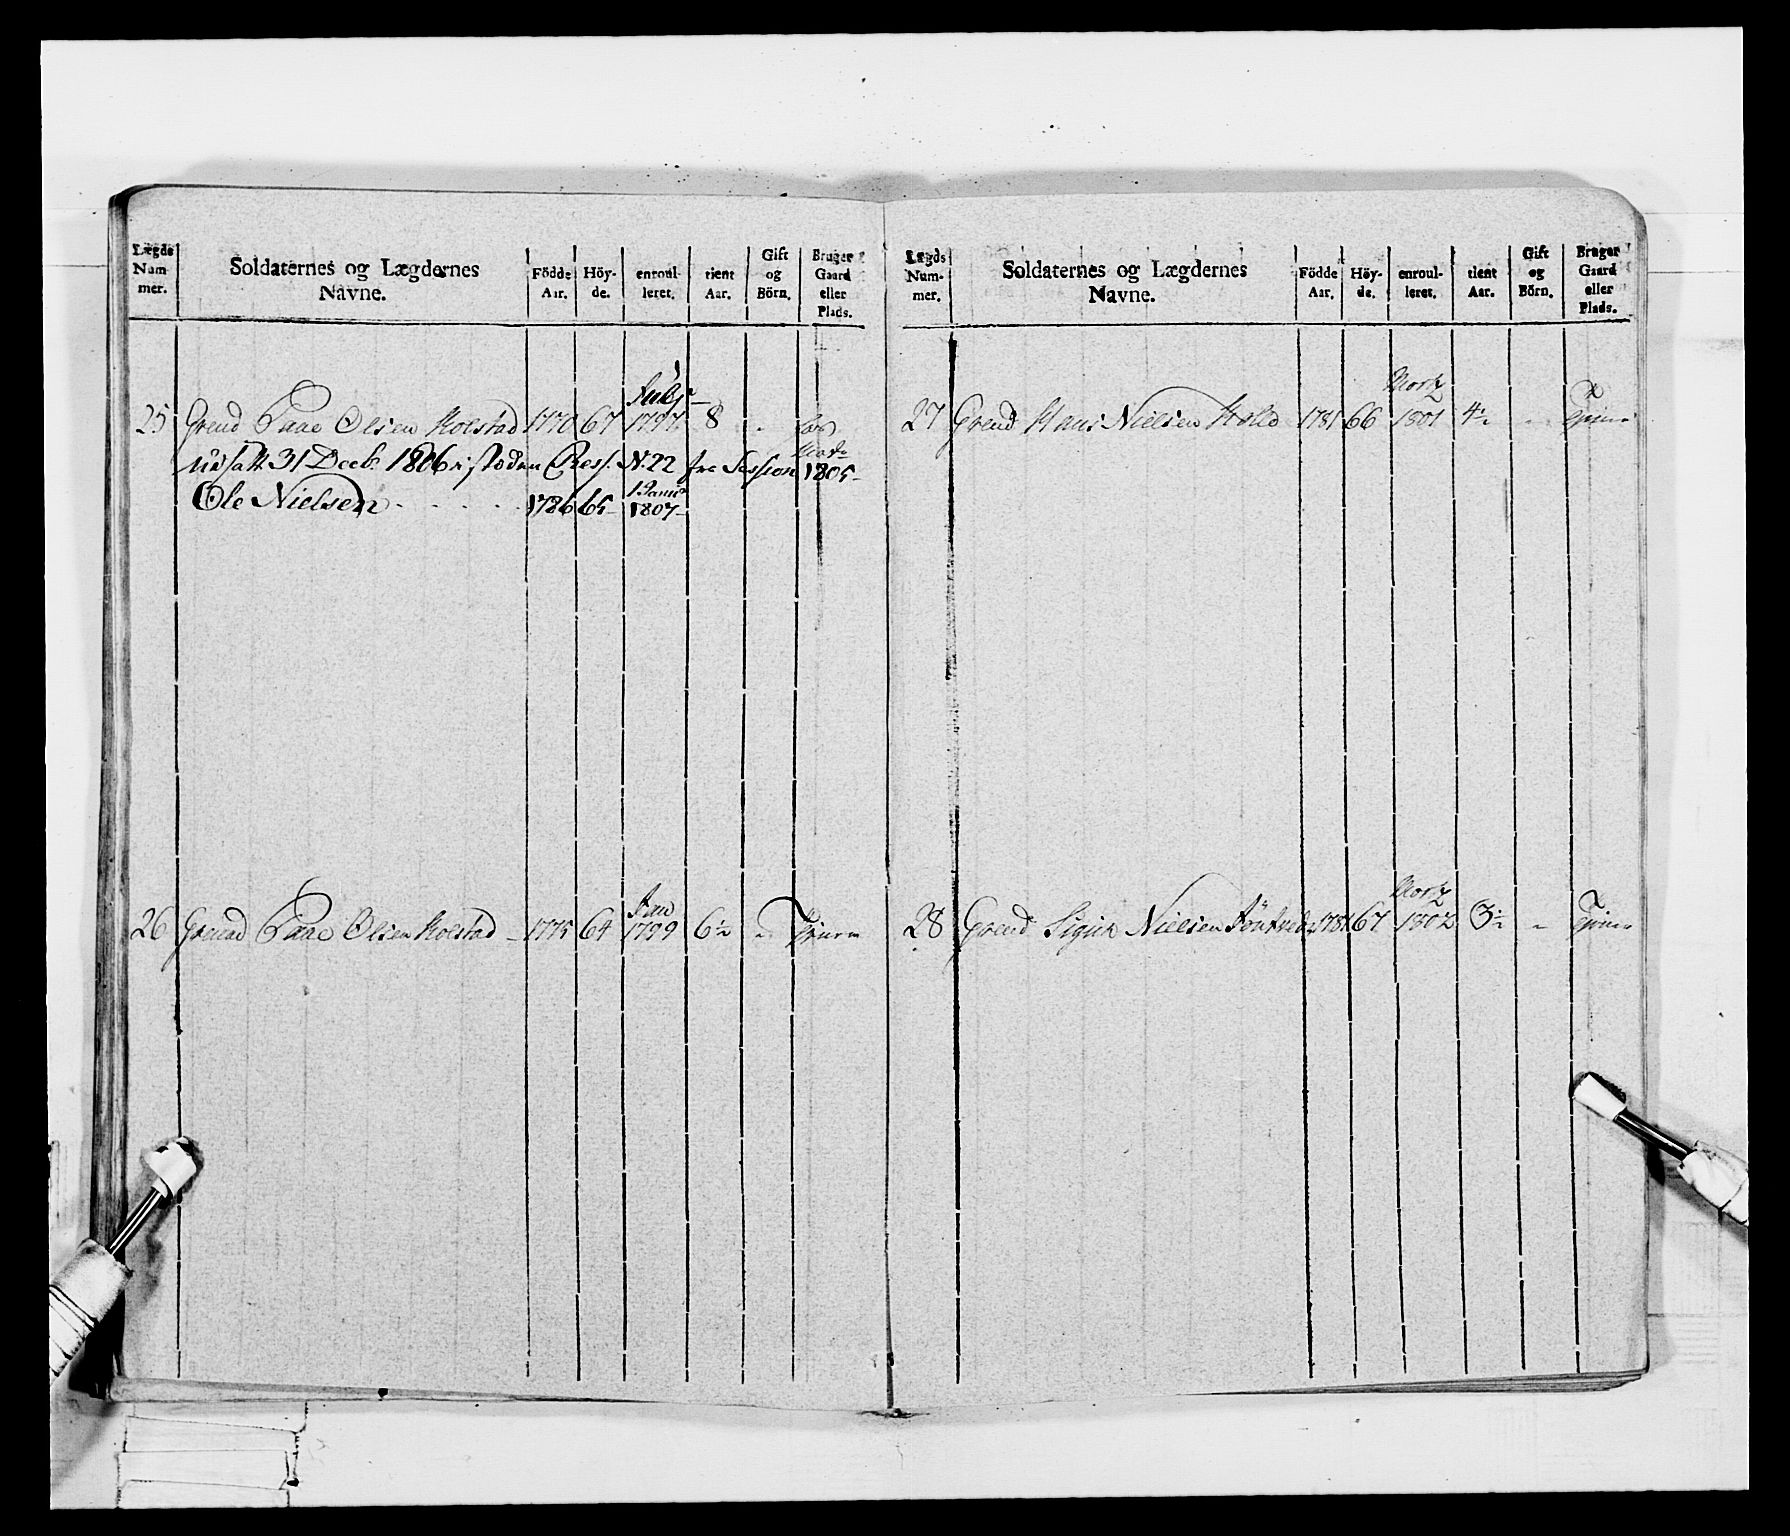 Lægds Num- mer.
Soldaternes og Lægdernes Navne.
Födde Aar.
Höy- de.
enroul- leret.
tient Aar.
Gift og Börn.
Bruger Gaard eller Plads.
July
25 Grend Paae Olsen Kolstad 1770 67 1797 8
Udsatt 31 Decb. 1806 i stæden Ress. N. 22 fra Session 1805
1 Janu
Ole Nielsen 1786 65 1807
Jan
26 Grenad Paae Olsen Kolstad 1775 64 1799 6½ Tjener
Lægds Num- mer.
Soldaternes og Lægdernes Navne.
Födde Aar.
Höy- de.
enroul- leret.
tient Aar.
Gift og Börn.
Bruger Gaard eller Plads.
Martz
27 Grend Hans Nielsen Hold 1781 66 1801 4½ Tjener
Martz
28 Grend Nielsen 1781 67 1802 3½ Tjener